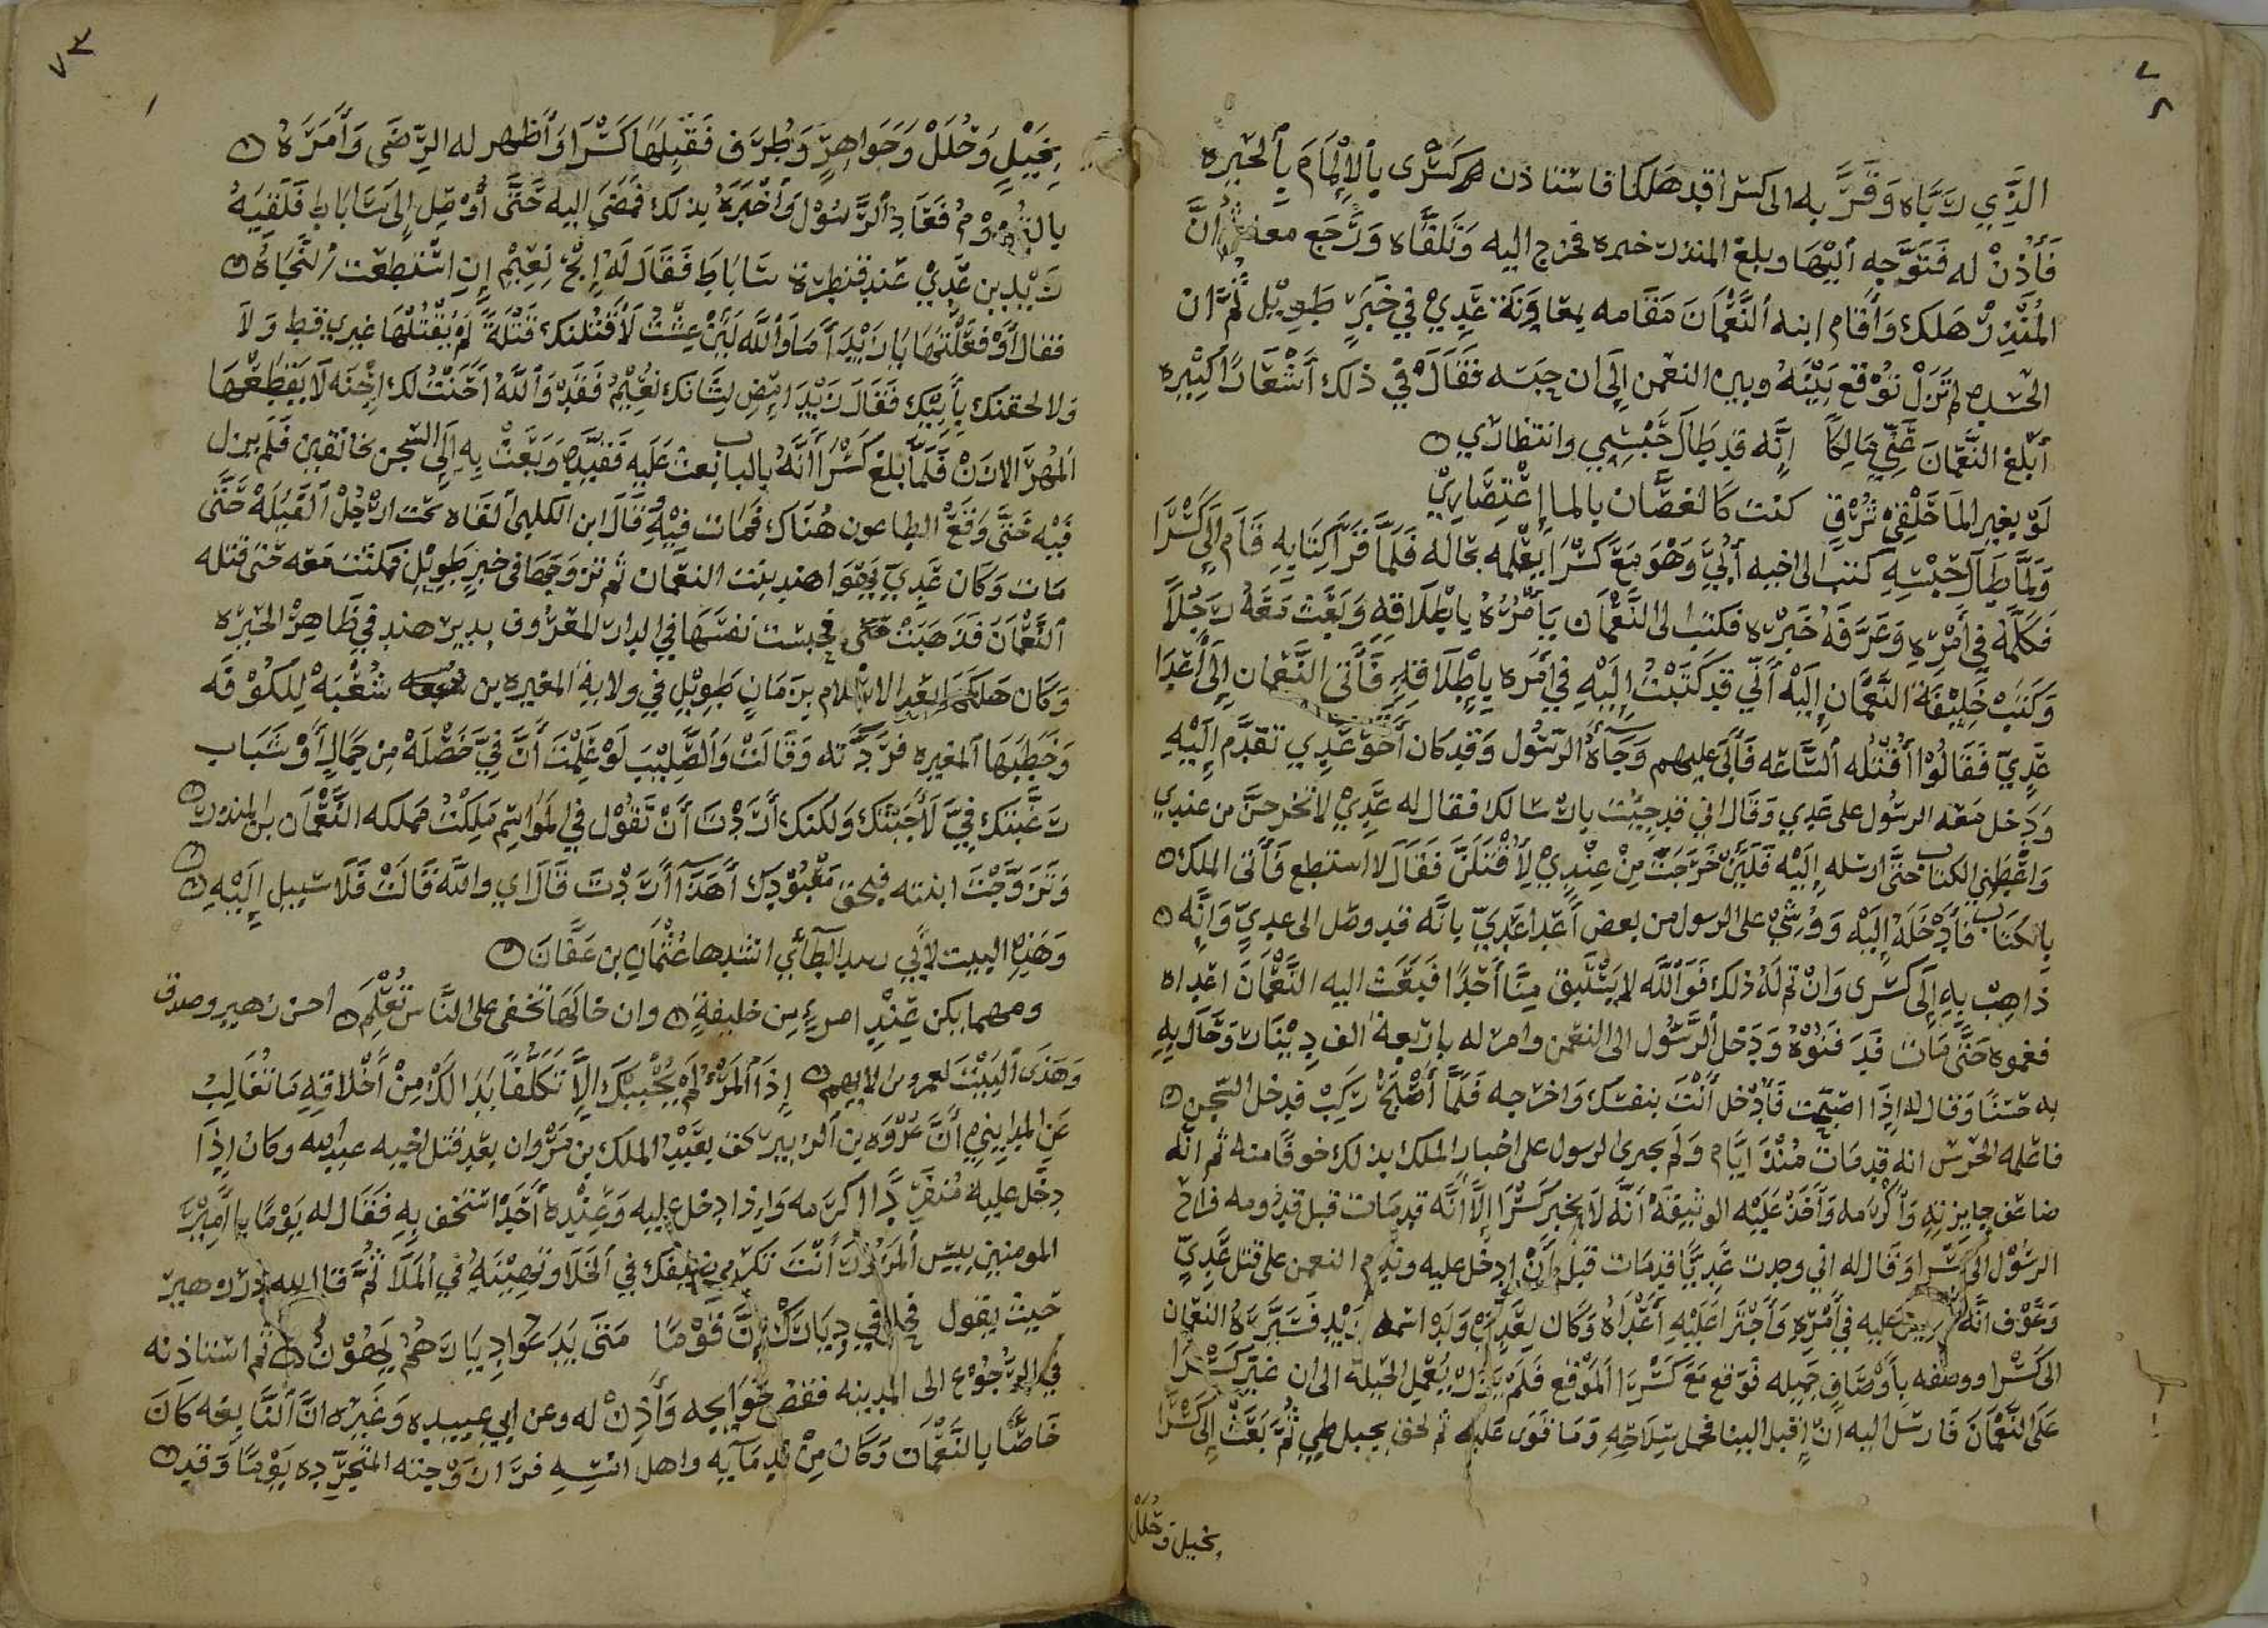 الذي رباه وقربه الى كسرا قد هلكا فاستاذن كسرى بالإلمام بالحيره
فأذن له فتوجه اليها وبلغ المنذر خبره فخرج اليه وتلقاه ورجع معه ثم ان
المنذر هلك وأقام ابنه النعمان مقامه بمعاونة عدي في خبر طويل ثم ان
الحسده لم تزل توقع بينه وبين النعمن إلى ان حبسه فقال في ذلك أشعارا كثيره
أبلغ النعمان عني مالكا إنه قد طال حبسي وانتظاري
لو بغير الما حلقي شرق كنت كالغصان بالما إعتصاري
ولما طال حبسه كتب الى اخيه أبي وهو مع كسرا يعلمه بحاله فلما قرا كتابه قام إلى كسرا
فكلمه في أمره وعرفه خبره فكتب الى النعمان يأمره باطلاقه وبعث معه رجلا
وكتب خليفة النعمان إليه أني قد كتبت إليه في أمره بإطلاقه فأتى النعمان إلى أعدا
عدي فقالوا أقتله الساعه فأبى عليهم وجآءه الرسول وقد كان أخو عدي تقدم إليه
ودخل معه الرسول على عدي وقال اني قد جيت بارسالك فقال له عدي لا تخرجن من عندي
واعطني الكتاب حتى ارسله إليه فلين خرجت من عندي لأقتلن فقال لا استطع فأتى الملك
بالكتاب فأدخله إليه ووشي على الرسول من بعض أعدا عدي بانه قد وصل الى عدي وانه
ذاهب به إلى كسرى وان تم له ذلك فوالله لا يستبق منا أحدا فبعث اليه النعمان اعداه
فغموه حتى مات قد فنوه ودخل الرسول الى النعمن وامر له باربعة الف دينار وخاليه
به حسنا وقال له إذا اصبحت فأدخل أنت بنفسك واخرجه فلما أصبح ركب فدخل السجن
فاعلمه الحرس انه قد مات منذ ايام ولم يجري الرسول على اخبار الملك بذلك خوفا منه ثم انه
ضاعف جايزته وأكرمه وأخذ عليه الوثيقه أنه لا يخبر كسرا إلا أنه قد مات قبل قدومه فراح
الرسول الى كسرا وقال له اني وجدت عديا قد مات قبل أن ادخل عليه وندم النعمن على قتل عدي
وعرف انه عليه في أمره وأجترا عليه أعداه وكان لعدي ولد اسمه زيد فسيره النعمان
الى كسرا ووصفه بأوصاف جميله فوقع مع كسرا الموقع فلم يزل يعمل الحيلة الى ان غير كسرا
على النعمان فارسل اليه ان اقبل الينا فحمل سلاحه وما قوى عليه ثم لحق بجبل طي ثم بعث إلى كسرا
بخيل وحلل
٧٣
بخيل وحلل وجواهر وطرف فقبلها كسرا وأظهر له الرضى وأمره
بالقدوم فعاد الرسول وأخبره بذلك فمضى اليه حتى أوصل إلى ساباط فلقيه
زيد بن عدي عند قنطرة ساباط فقال له إنج نعيم إن استطعت النجاه
فقال أوفعلتها يا زيد أما والله لين عشت لأقتلنك قتلة لم يقتلها غيري قط ولا
ولا لحقنك بأبيك فقال زيد امض لشانك نعيم فقد والله أخنت لك اخنه لا يقطعها
المهر الارن فلما بلغ كسرا أنه بالباب بعث عليه فقيده وبعث به إلى السجن بخانقين فلم يزل
فيه حتى وقع الطاعون هناك فمات فيه قال ابن الكلبي ألقاه تحت ارجل الفيله حتى
مات وكان عدي يهوا هند بنت النعمان ثم تزوجها في خبر طويل فمكثت معه حتى قتله
النعمان فترهبت حتى فحبست نفسها في الدار المعروف بدير هند في ظاهر الحيره
وكان هلكها بعد الاسلام بزمان طويل في ولاية المغيره بن شعبه للكوفه
وخطبها المغيره فردته وقالت والصليب لو علمت أن في خصلة من جمال أو شباب
رغبتك في لأجبتك ولكنك أردت أن تقول في المواسم ملكت مملكه النعمان بن المنذر
وتزوجت ابنته فبحق معبودك أهذا أردت قال اي والله قالت فلا سبيل إليه
وهذه البيت لابي الطائي انشدها عثمان بن عفان
ومهما يكن عند امرئ من خليفة وان خالها تخفى على الناس تعلم احسن زهير وصدق
وهذى البيت لعمرو إذا المرؤ لم يحببك إلا تكلفا بدا لك من أخلاقه ما تغالب
عن المدايني أن عروه بن الزبير كف بعبد الملك بن مروان بعد قتل اخيه عبدالله وكان إذا
دخل عليه منفردا اكرمه وإذا دخل عليه وعنده أحد استخف به فقال له يوما يا امير
المومنين بيس المرؤ أنت تكرم ضيفك في الخلا وتهينه في الملا ثم قال لله در زهير
حيث يقول فحلي في ديارك إن قوما متى يدعوا ديارهم يهونو ثم استاذنه
في الرجوع الى المدينه فقضى حوايجه وأذن له وعن ابي عبيده وغيره ان النابغه كان
خاصا بالنعمان وكان من ندمآيه واهل انسه فرا زوجته المتجرده يوما وقد